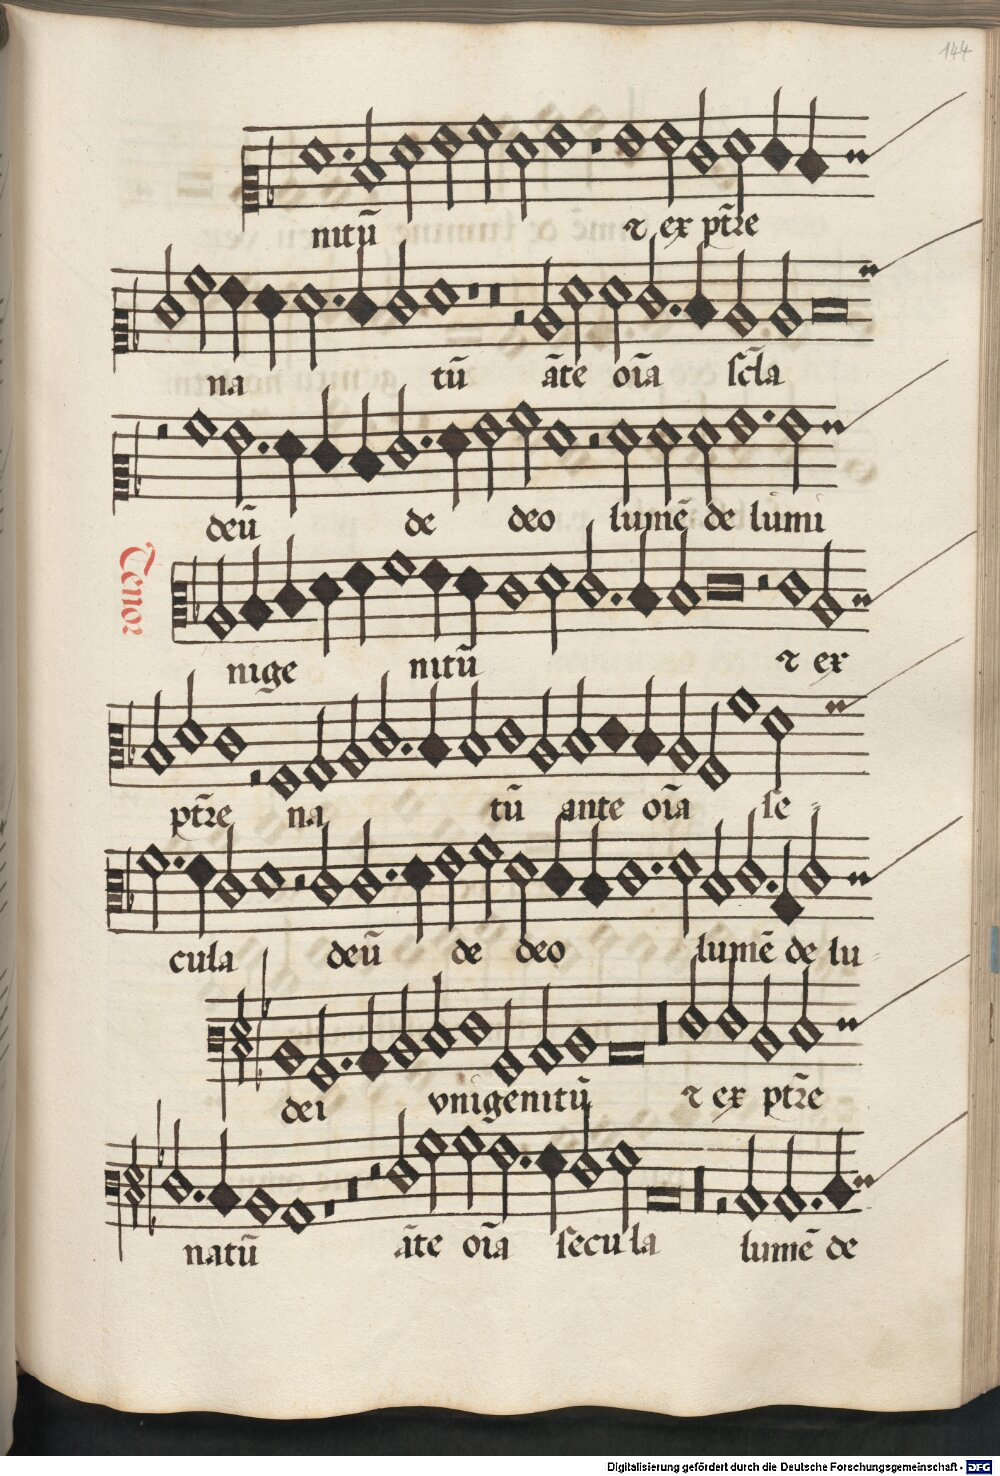 144
nitū ⁊ ex ptr̄e
na tū āte oīa scl̄a
deū de deo lumē de lumi
Tenor
nige nitū ⁊ ex
ptr̄e na tū ante oīa se=
cula deū de deo lumē de lu=
dei vnigenitū ⁊ ex ptr̄e
natū āte oīa secula lumē de
Digitalisierung gefördert durch die Deutsche Forschungsgemeinschaft - DFG